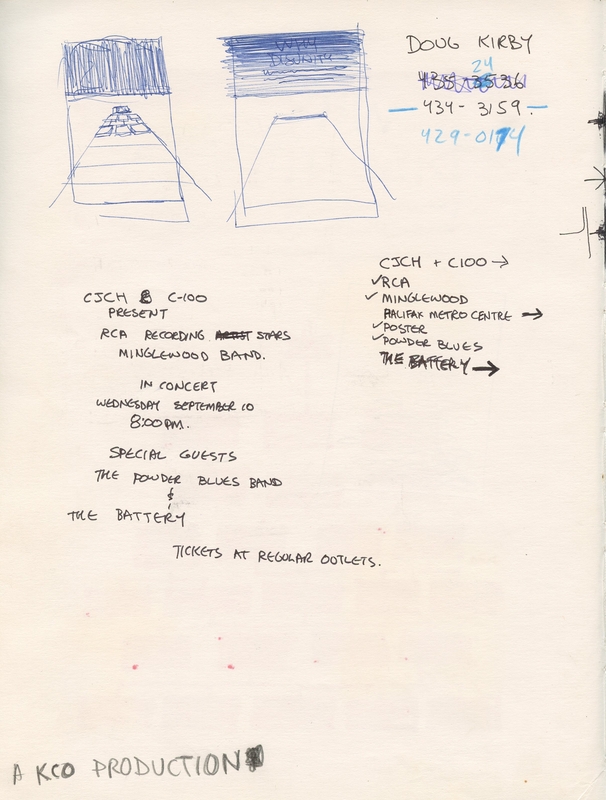 WHY
DISUNITY
DOUG KIRBY
24
434- 3159.
429-0174
CJCH + C100 →
✓RCA
✓MINGLEWOOD
HALIFAX METRO CENTRE →
✓POSTER
✓POWDER BLUES
THE BATTERY →
CJCH & C-100
PRESENT
RCA RECORDING ARTIST STARS
MINGLEWOOD BAND.
IN CONCERT
WEDNESDAY SEPTEMBER 10
8:00 P.M.
SPECIAL GUESTS
THE POWDER BLUES BAND
&
THE BATTERY
TICKETS AT REGULAR OUTLETS.
A KCO PRODUCTION